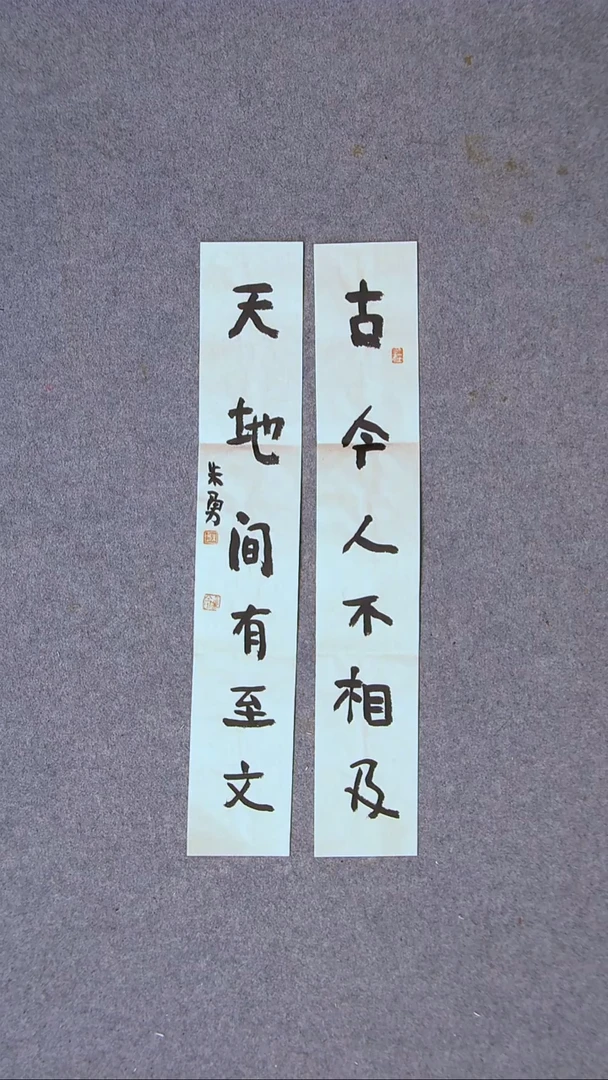 古今人不相及
天地间有至文
朱勇